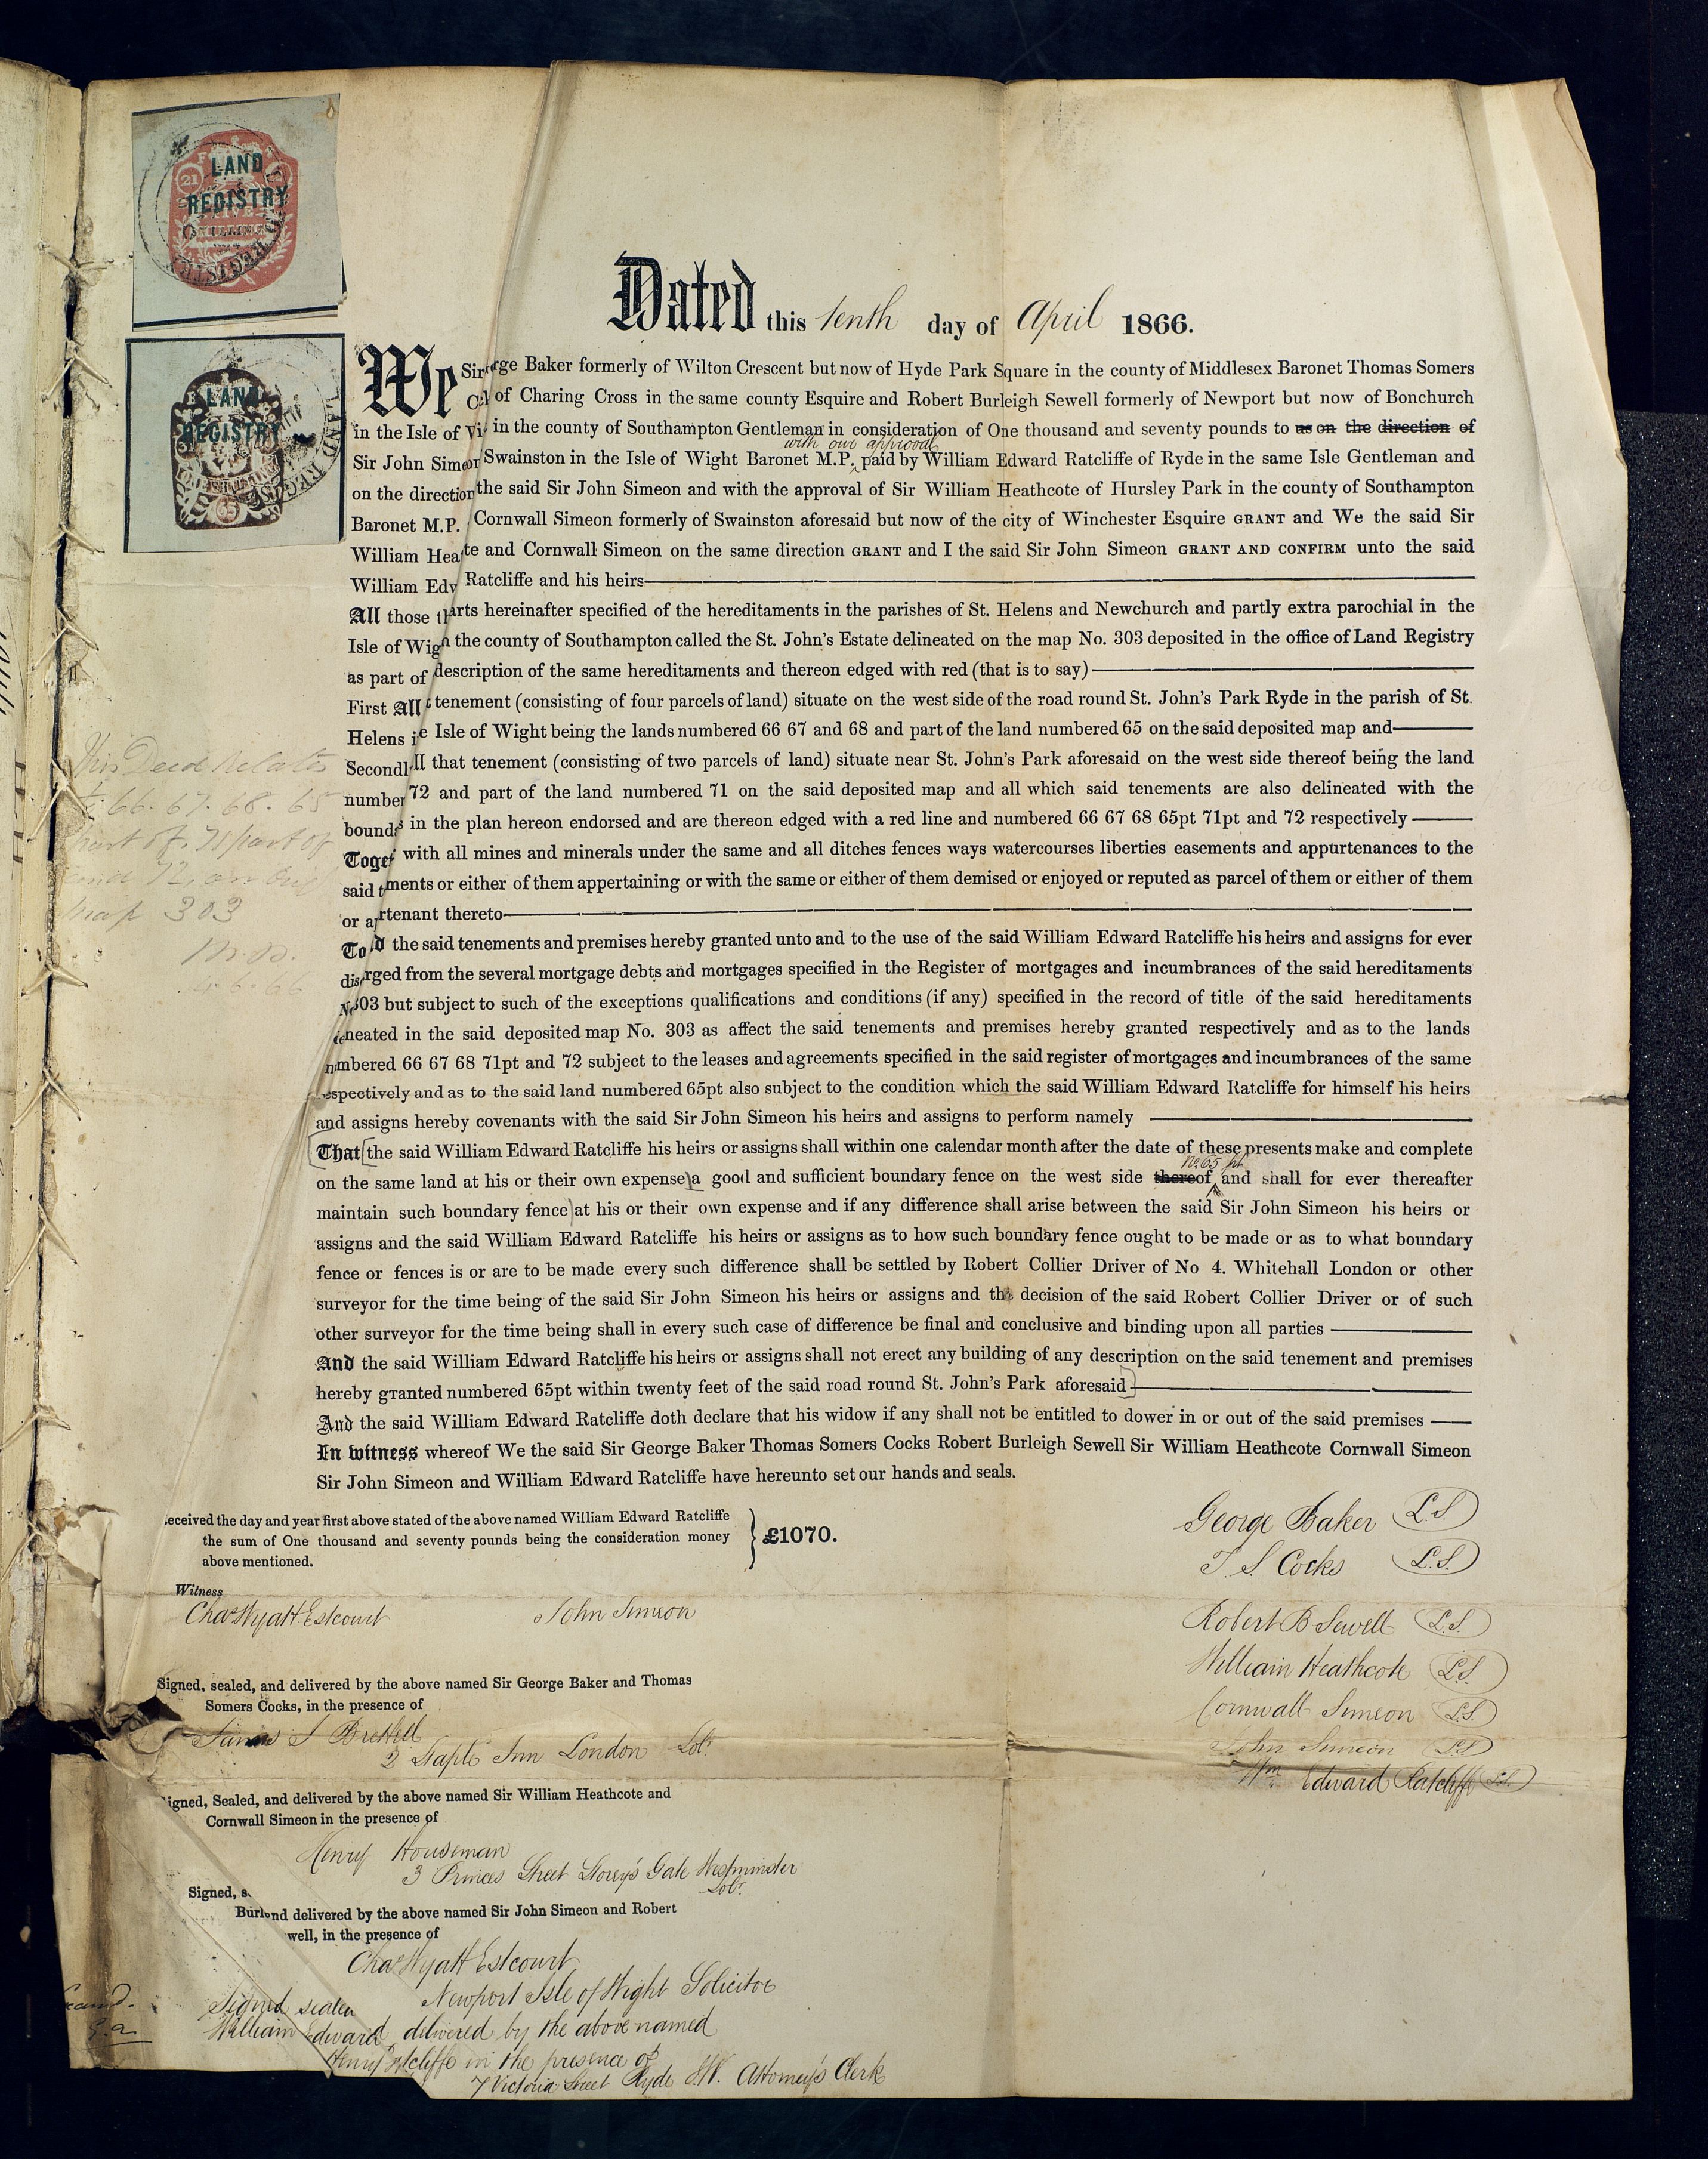 LAND
REGISTRY
LAND
REGISTRY
Dated this tenth day of April 1866.
We Sir rge Baker formerly of Wilton Crescent but now of Hyde Park Square in the county of Middlesex Baronet Thomas Somers
of Charing Cross in the same county Esquire and Robert Burleigh Sewell formerly of Newport but now of Bonchurch
in the Isle of in the county of Southampton Gentleman in consideration of One thousand and seventy pounds to us on the direction of
with our approval
Sir John Simeon Swainston in the Isle of Wight Baronet M.P. paid by William Edward Ratcliffe of Ryde in the same Isle Gentleman and
on the direction the said Sir John Simeon and with the approval of Sir William Heathcote of Hursley Park in the county of Southampton
Baronet M.P. Cornwall Simeon formerly of Swainston aforesaid but now of the city of Winchester Esquire GRANT and We the said Sir
William Hea te and Cornwall Simeon on the same direction GRANT and I the said Sir John Simeon GRANT AND CONFIRM unto the said
William Edw Ratcliffe and his heirs
All those th arts hereinafter specified of the hereditaments in the parishes of St. Helens and Newchurch and partly extra parochial in the
Isle of Wig n the county of Southampton called the St. John's Estate delineated on the map No. 303 deposited in the office of Land Registry
as part of description of the same hereditaments and thereon edged with red (that is to say)
First All t tenement (consisting of four parcels of land) situate on the west side of the road round St. John's Park Ryde in the parish of St.
Helens i e Isle of Wight being the lands numbered 66 67 and 68 and part of the land numbered 65 on the said deposited map and
Secondl ll that tenement (consisting of two parcels of land) situate near St. John's Park aforesaid on the west side thereof being the land
number 72 and part of the land numbered 71 on the said deposited map and all which said tenements are also delineated with the
bound s in the plan hereon endorsed and are thereon edged with a red line and numbered 66 67 68 65pt 71pt and 72 respectively
Toget with all mines and minerals under the same and all ditches fences ways watercourses liberties easements and appurtenances to the
said t ments or either of them appertaining or with the same or either of them demised or enjoyed or reputed as parcel of them or either of them
or a rtenant thereto
To d the said tenements and premises hereby granted unto and to the use of the said William Edward Ratcliffe his heirs and assigns for ever
dis rged from the several mortgage debts and mortgages specified in the Register of mortgages and incumbrances of the said hereditaments
No 303 but subject to such of the exceptions qualifications and conditions (if any) specified in the record of title of the said hereditaments
neated in the said deposited map No. 303 as affect the said tenements and premises hereby granted respectively and as to the lands
numbered 66 67 68 71pt and 72 subject to the leases and agreements specified in the said register of mortgages and incumbrances of the same
espectively and as to the said land numbered 65pt also subject to the condition which the said William Edward Ratcliffe for himself his heirs
and assigns hereby covenants with the said Sir John Simeon his heirs and assigns to perform namely
That the said William Edward Ratcliffe his heirs or assigns shall within one calendar month after the date of these presents make and complete
No 65 pt
on the same land at his or their own expense a good and sufficient boundary fence on the west side thereof and shall for ever thereafter
maintain such boundary fence at his or their own expense and if any difference shall arise between the said Sir John Simeon his heirs or
assigns and the said William Edward Ratcliffe his heirs or assigns as to how such boundary fence ought to be made or as to what boundary
fence or fences is or are to be made every such difference shall be settled by Robert Collier Driver of No 4. Whitehall London or other
surveyor for the time being of the said Sir John Simeon his heirs or assigns and the decision of the said Robert Collier Driver or of such
other surveyor for the time being shall in every such case of difference be final and conclusive and binding upon all parties
And the said William Edward Ratcliffe his heirs or assigns shall not erect any building of any description on the said tenement and premises
hereby granted numbered 65pt within twenty feet of the said road round St. John's Park aforesaid
And the said William Edward Ratcliffe doth declare that his widow if any shall not be entitled to dower in or out of the said premises
In witness whereof We the said Sir George Baker Thomas Somers Cocks Robert Burleigh Sewell Sir William Heathcote Cornwall Simeon
Sir John Simeon and William Edward Ratcliffe have hereunto set our hands and seals.
This Deed relates
to 66. 67. 68. 65
part of. 71 part of
and 72, on
map 303
4.6.66
eceived the day and year first above stated of the above named William Edward Ratcliffe
the sum of One thousand and seventy pounds being the consideration money
above mentioned.
£1070.
Witness
Chas Wyatt Estcourt
John Simeon
George Baker L.S.
T. S. Cocks L.S.
Robert B Sewell L.S.
William Heathcote L.S.
Cornwall Simeon L.S.
John Simeon L.S.
Wm Edward Ratcliffe L.S.
Signed, sealed, and delivered by the above named Sir George Baker and Thomas
Somers Cocks, in the presence of
James S Brettell
2 Staple Inn London Solr.
igned, Sealed, and delivered by the above named Sir William Heathcote and
Cornwall Simeon in the presence of
Henry Houseman
3 Princes Street Storey's Gate Westminster
Solr.
Signed, s
Burl nd delivered by the above named Sir John Simeon and Robert
well, in the presence of
Chas Wyatt Estcourt
Newport Isle of Wight Solicitor
Signed sealed
William Edward delivered by the above named
Henry atcliffe in the presence of
7 Victoria Street Ryde I.W. Attorney's Clerk